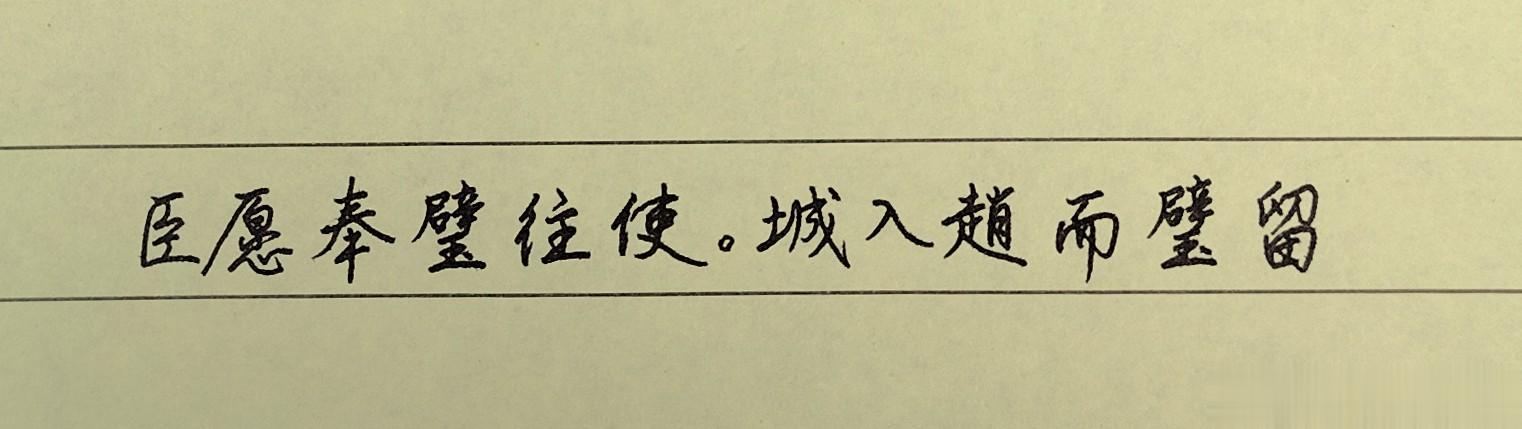 臣愿奉璧往使。城入趙而璧留